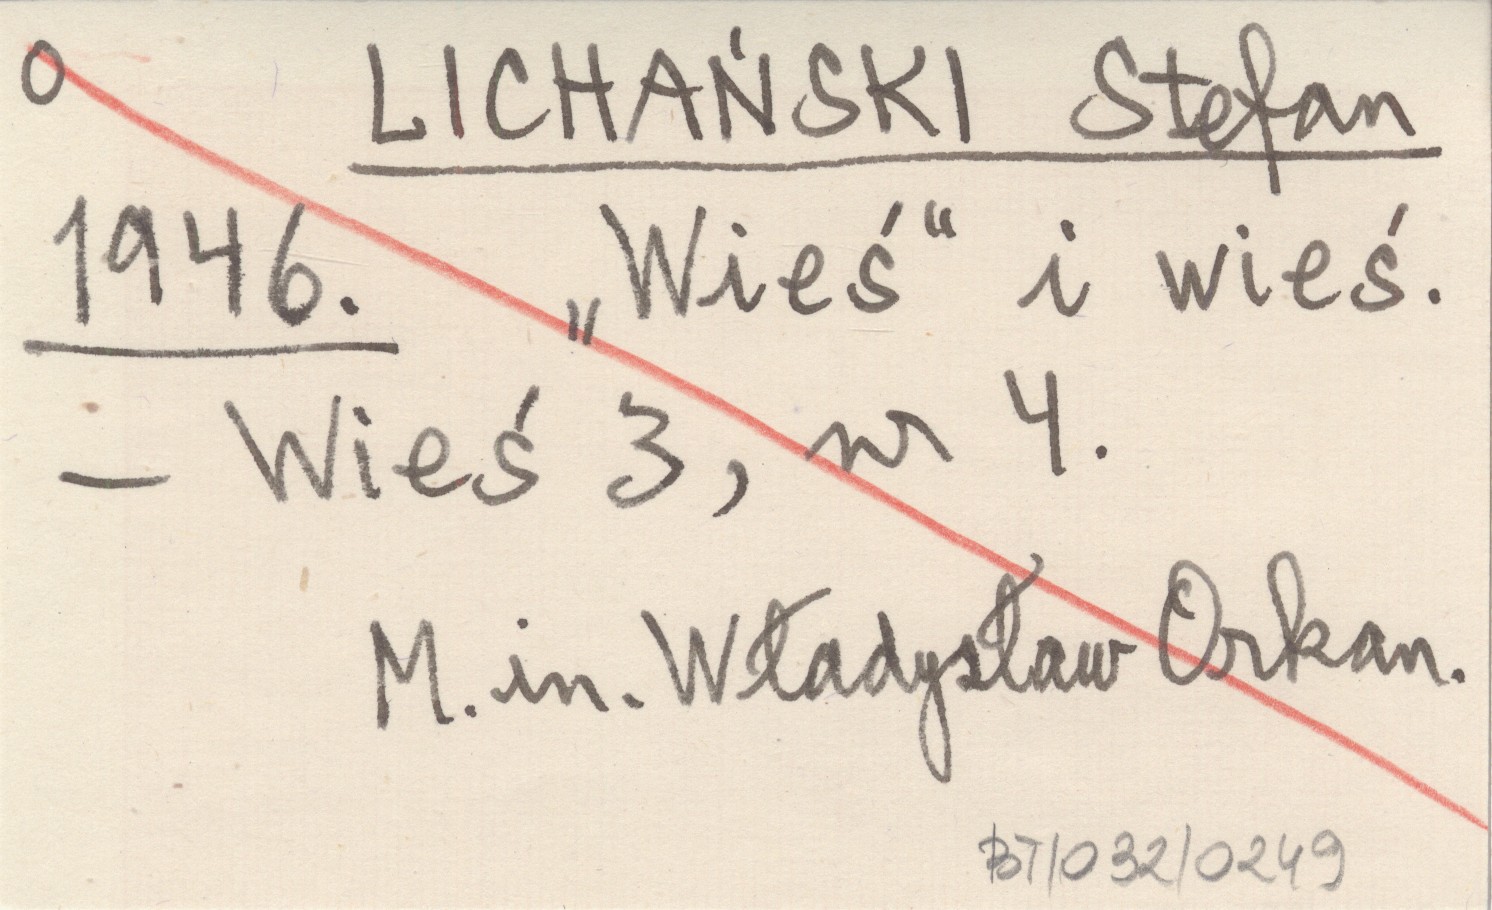 O LICHAŃSKI Stefan
1946. „Wieś“ i wieś.
— Wieś 3, nr 4.
M. in. Władysław Orkan.
BT/032/0249